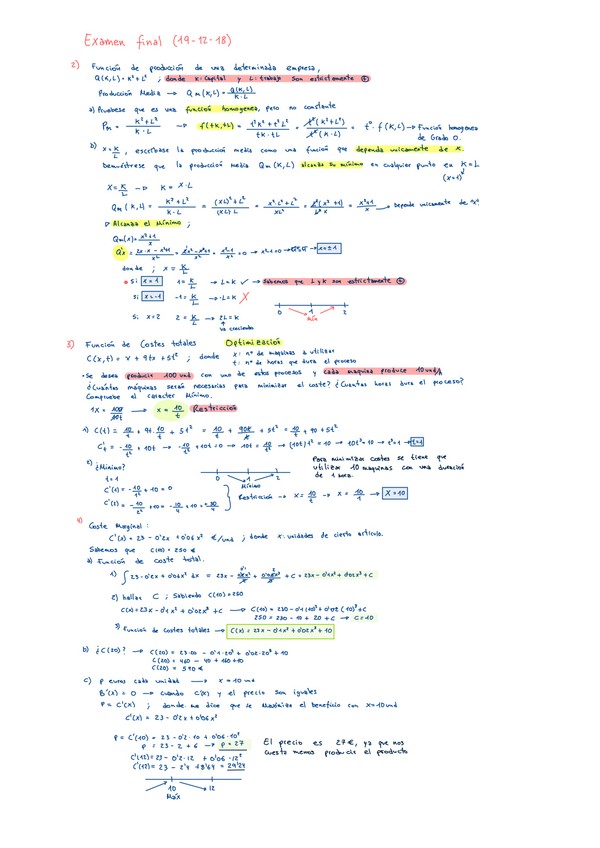 Examen final (19-12-18)
2) Función de producción de una determinada empresa,
Q(K,L) = K² + L² ; donde K: Capital y L: trabajo son estrictamente ⊕
Producción Media → Qm(K,L) = Q(K,L) / K·L
a) Pruebese que es una función homogenea, pero no constante
Pm = K²+L² / K·L → f(tK,tL) = t²K²+t²L² / tK·tL = t²(K²+L²) / t²(K·L) = t⁰·f(K,L) → Función homogenea de Grado 0.
b) x = K/L , escribase la producción media como una función que dependa unicamente de x.
Demuéstrese que la producción media Qm(K,L) alcanza su mínimo en cualquier punto en K=L
(x=1)
X = K/L → K = X·L
Qm(K,L) = K²+L² / K·L = (XL)²+L² / (XL)·L = x²·L²+L² / XL² = L²(x²+1) / L²x = x²+1 / x → Depende unicamente de "x".
▷ Alcanza el Mínimo ;
Qm(x) = x²+1 / x
donde ; x = K/L
• Si x=1 1 = K/L → L=K ✓ → Sabemos que L y K son estrictamente ⊕
Si x=-1 -1 = K/L → -L=K ✗
Si x=2 2 = K/L → 2L=K
va creciendo
0 1 2
Mín
3) Función de Costes totales Optimización
x: nº de maquinas a utilizar
t: nº de horas que dura el proceso
• Se desea producir 100 und con uno de estos procesos y cada maquina produce 10 und/h
¿Cuántas máquinas serán necesarias para minimizar el coste? ¿Cuantas horas dura el proceso?
Compruebe el caracter Mínimo.
x = 10/t Restricción
1) C(t) = 10/t + 9t·10/t + 5t² = 10/t + 90t/t + 5t² = 10/t + 90 + 5t²
2) ¿Mínimo?
t=1
C'(1) = -10/1² + 10 = 0
0 1 2
Mínimo
Restricción → x = 10/t → x = 10/1 → X=10
Para minimizar costes se tiene que
utilizar 10 maquinas con una duración
de 1 hora.
4) Coste Marginal:
C'(x) = 23 - 0'2x + 0'06x² €/und ; donde x: unidades de cierto articulo.
Sabemos que C(10) = 250 €
a) Función de coste total.
2) hallar C ; Sabiendo C(10)=250
C(x) = 23x - 0'1x² + 0'02x³ + C → C(10) = 230 - 0'1(10)² + 0'02(10)³ + C
250 = 230 - 10 + 20 + C → C=10
3) Función de Costes totales → C(x) = 23x - 0'1x² + 0'02x³ + 10
b) ¿C(20)? → C(20) = 23·20 - 0'1·20² + 0'02·20³ + 10
C(20) = 460 - 40 + 160 + 10
C(20) = 590 €
c) P euros cada unidad → x = 10 und
B'(x) = 0 → cuando C'(x) y el precio son iguales
P = C'(x) ; donde me dice que se Maximiza el beneficio con x=10 und
C'(x) = 23 - 0'2x + 0'06x²
P = C'(10) = 23 - 0'2·10 + 0'06·10²
P = 23 - 2 + 6 → P = 27
C'(12) = 23 - 0'2·12 + 0'06·12²
C'(12) = 23 - 2'4 + 8'64 = 29'24
El precio es 27€, ya que nos
cuesta menos producir el producto
10 12
Max